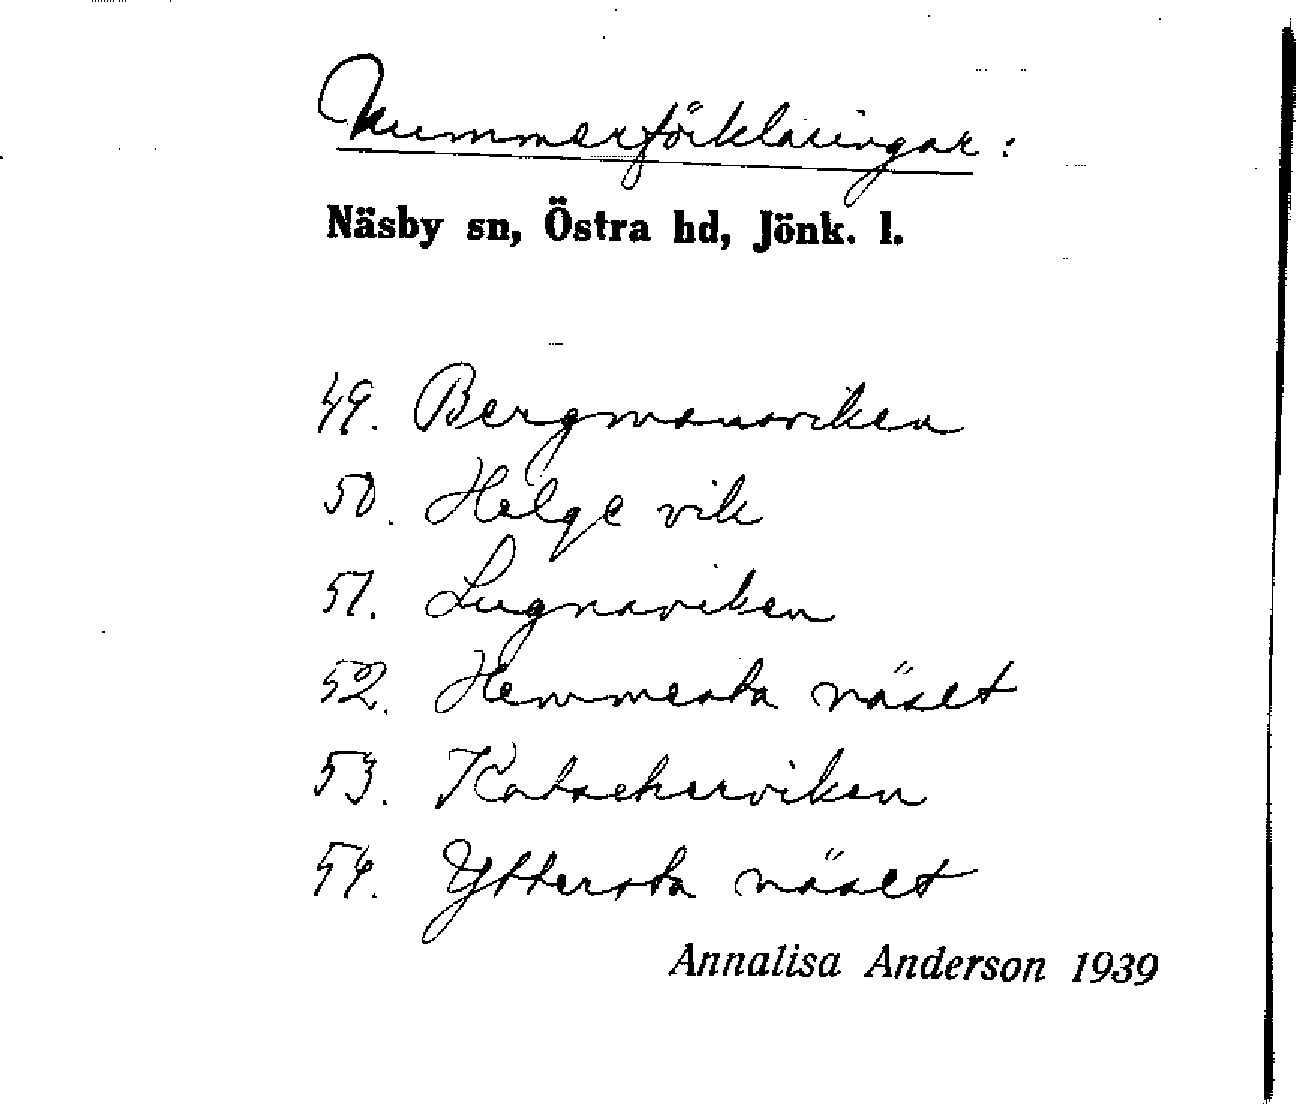 Nummerförklaringar:
Näsby sn, Östra hd, Jönk. l.
49. Bergmansviken
50. Helge vik
51. Lugnaviken
52. Hemmesta näset
53.
54. Yttersta näset
Annalisa Anderson 1939